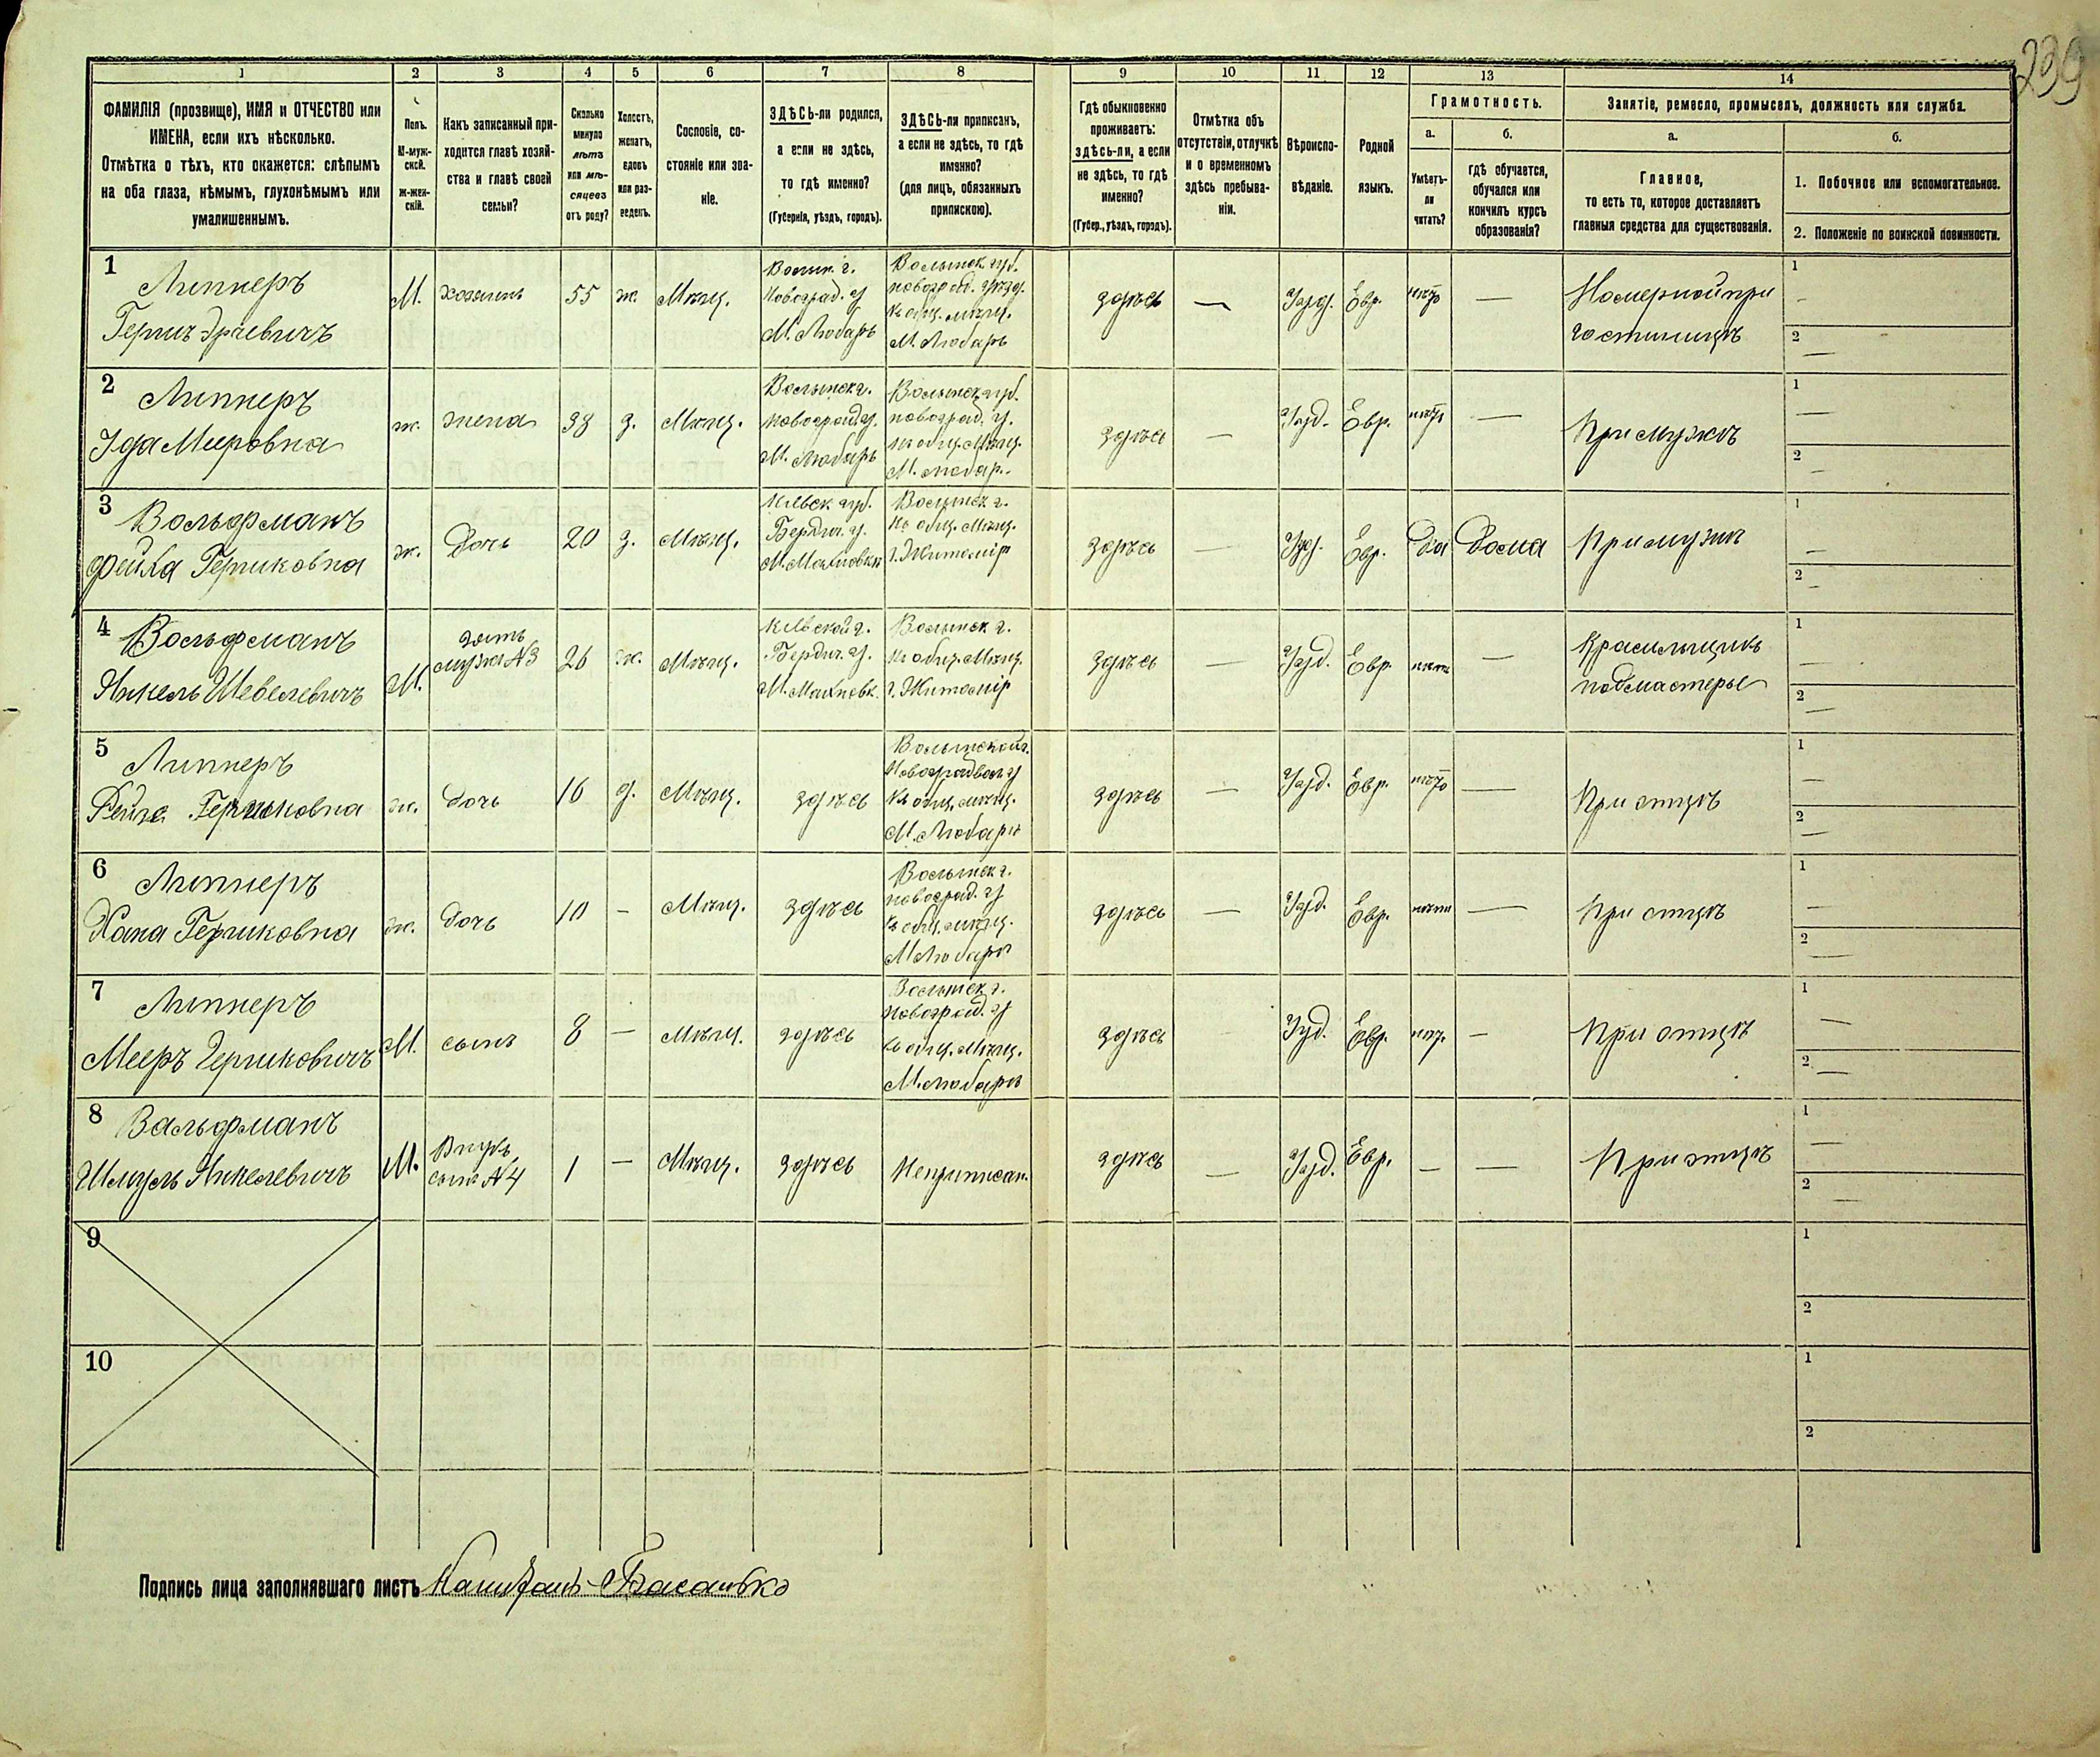 239
1 2 3 4 5 6 7 8 9 10 11 12 13 14
ФАМИЛІЯ (прозвище), ИМЯ и ОТЧЕСТВО или
ИМЕНА, если ихъ нѣсколько.
Отмѣтка о тѣхъ, кто окажется: слѣпымъ
на оба глаза, нѣмымъ, глухонѣмымъ или
умалишеннымъ.
Полъ.
М-муж-
ской.
ж-жен-
скій.
Какъ записанный при-
ходится главѣ хозяй-
ства и главѣ своей
семьи?
Сколько
минуло
лѣтъ
или мѣ-
сяцевъ
отъ роду?
Холостъ,
женатъ,
вдовъ
или раз-
веденъ.
Сословіе, со-
стояніе или зва-
ніе.
ЗДѢСЬ-ли родился,
а если не здѣсь,
то гдѣ именно?
(Губернія, уѣздъ, городъ).
ЗДѢСЬ-ли приписанъ,
а если не здѣсь, то гдѣ
именно?
(для лицъ, обязанныхъ
припискою).
Гдѣ обыкновенно
проживаетъ:
здѣсь-ли, а если
не здѣсь, то гдѣ
именно?
(Губер., уѣздъ, городъ).
Отмѣтка объ
отсутствіи, отлучкѣ
и о временномъ
здѣсь пребыва-
ніи.
Вѣроиспо-
вѣданіе.
Родной
языкъ.
Грамотность.
а.
Умѣетъ-
ли
читать?
б.
гдѣ обучается,
обучался или
кончилъ курсъ
образованія?
Занятіе, ремесло, промыселъ, должность или служба.
а.
Главное,
то есть то, которое доставляетъ
главныя средства для существованія.
б.
1. Побочное или вспомогательное.
2. Положеніе по воинской повинности.
1
Липнеръ
М. хозяинъ 55 ж. Мѣщ.
Новоград. у
М. Любарь
Волынск. губ.
М. Любарь
здѣсь — Іуд. Евр. —
Номерной при
гостиницѣ
1
2 —
2
Липнеръ
Ида Мееровна
ж. жена 38 з. Мѣщ.
Волынск г.
М. Любарь
Волынск губ.
новоград. у.
М. Любар.
здѣсь — Іуд. Евр. —
При мужѣ
1 —
2 —
3
Вольфманъ
Фейга Гершковна
ж. Дочь 20 з. Мѣщ.
Кіевск губ.
Бердич. у.
М. Махновка
Волынск г.
г. Житомір
здѣсь — Іуд. Евр. Да Дома При мужѣ
1 —
2 —
4
Вольфманъ
Янкель Шевелевичъ
М. зять
мужъ №3
26 ж. Мѣщ.
Кіевской г.
Бердич. у.
М. Махновк.
Волынск г.
Къ общ. Мѣщ.
г. Житомір
здѣсь — Іуд. Евр. нѣтъ —
Красильщикъ
подмастерье
1 —
2 —
5
Липнеръ
Гершковна
ж. Дочь 16 д. Мѣщ. здѣсь
Волынской г.
Къ общ. мѣщ.
М. Любарь
здѣсь — Іуд. Евр. —
При отцѣ
1 —
2 —
6
Липнеръ
Хана Гершковна
ж. Дочь 10 — Мѣщ. здѣсь
Волынск г.
новоград. у
Къ общ. мѣщ.
М Любарь
здѣсь — Іуд. Евр. нѣтъ —
При отцѣ
1 —
2 —
7
Липнеръ
Мееръ Гершковичъ
М. сынъ 8 — Мѣщ. здѣсь
Волынск г.
новоград. у
Къ общ. Мѣщ.
М. Любарь
здѣсь Іуд. Евр. —
При отцѣ
1 —
2 —
8
Вальфманъ
Шмуль Янкелевичъ
М. Внукъ,
сынъ №4
1 — Мѣщ. здѣсь Неприписан.
здѣсь — Іуд. Евр. — —
При отцѣ
1 —
2 —
9
1
2
10
1
2
Подпись лица заполнявшаго листъ